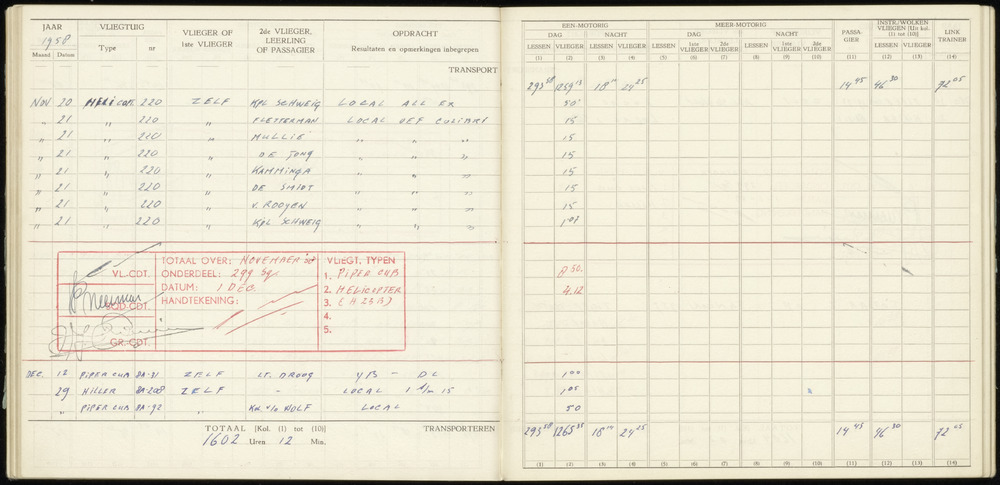 JAAR VLIEGTUIG VLIEGER OF 1ste VLIEGER 2de VLIEGER, LEERLING OF PASSAGIER OPDRACHT Resultaten en opmerkingen inbegrepen
1958
Maand Datum Type nr
TRANSPORT
NOV 20 HELICOPT. 220 ZELF KPL SCHWEIG LOCAL ALL EX
" 21 " 220 " FLETTERMAN LOCAL DEF CULIBRI
" 21 " 220 " MULLIE " " "
" 21 " 220 " DE JONG " " "
" 21 " 220 " KAMMINGA " " "
" 21 " 220 " DE SMIDT " " "
" 21 " 220 " V. ROOYEN " " "
" 21 " 220 " KPL SCHWEIG " " "
VL-CDT.
GR.-CDT.
TOTAAL OVER: NOVEMBER '58
ONDERDEEL: 299 Sq.
DATUM: 1 DEC.
HANDTEKENING:
VLIEGT. TYPEN
1. PIPER CUB
2. HELICOPTER
3. (H 23 B)
4.
5.
DEC. 12 PIPER CUB 8A-31 ZELF LT. DROOG YB - DL
29 HILLER 8A-208 ZELF - LOCAL 1 t/m 15
" PIPER CUB 8A-92 " WOLF LOCAL
TOTAAL [Kol. (1) tot (10)] TRANSPORTEREN
1602 Uren 12 Min.
EEN-MOTORIG MEER-MOTORIG PASSA-GIER INSTR./WOLKEN VLIEGEN [Uit kol. (1) tot (10)] LINK TRAINER
DAG NACHT DAG NACHT
LESSEN VLIEGER LESSEN VLIEGER LESSEN 1ste VLIEGER 2de VLIEGER LESSEN 1ste VLIEGER 2de VLIEGER LESSEN VLIEGER
(1) (2) (3) (4) (5) (6) (7) (8) (9) (10) (11) (12) (13) (14)
293 58 1259 13 18 14 24 25 14 45 46 30 72 05
50'
15
15
15
15
15
15
1 07
8 50.
4.12
1 00
1 05
50
293 58 1265 35 18 14 24 25 14 45 46 30 72 05
(1) (2) (3) (4) (5) (6) (7) (8) (9) (10) (11) (12) (13) (14)